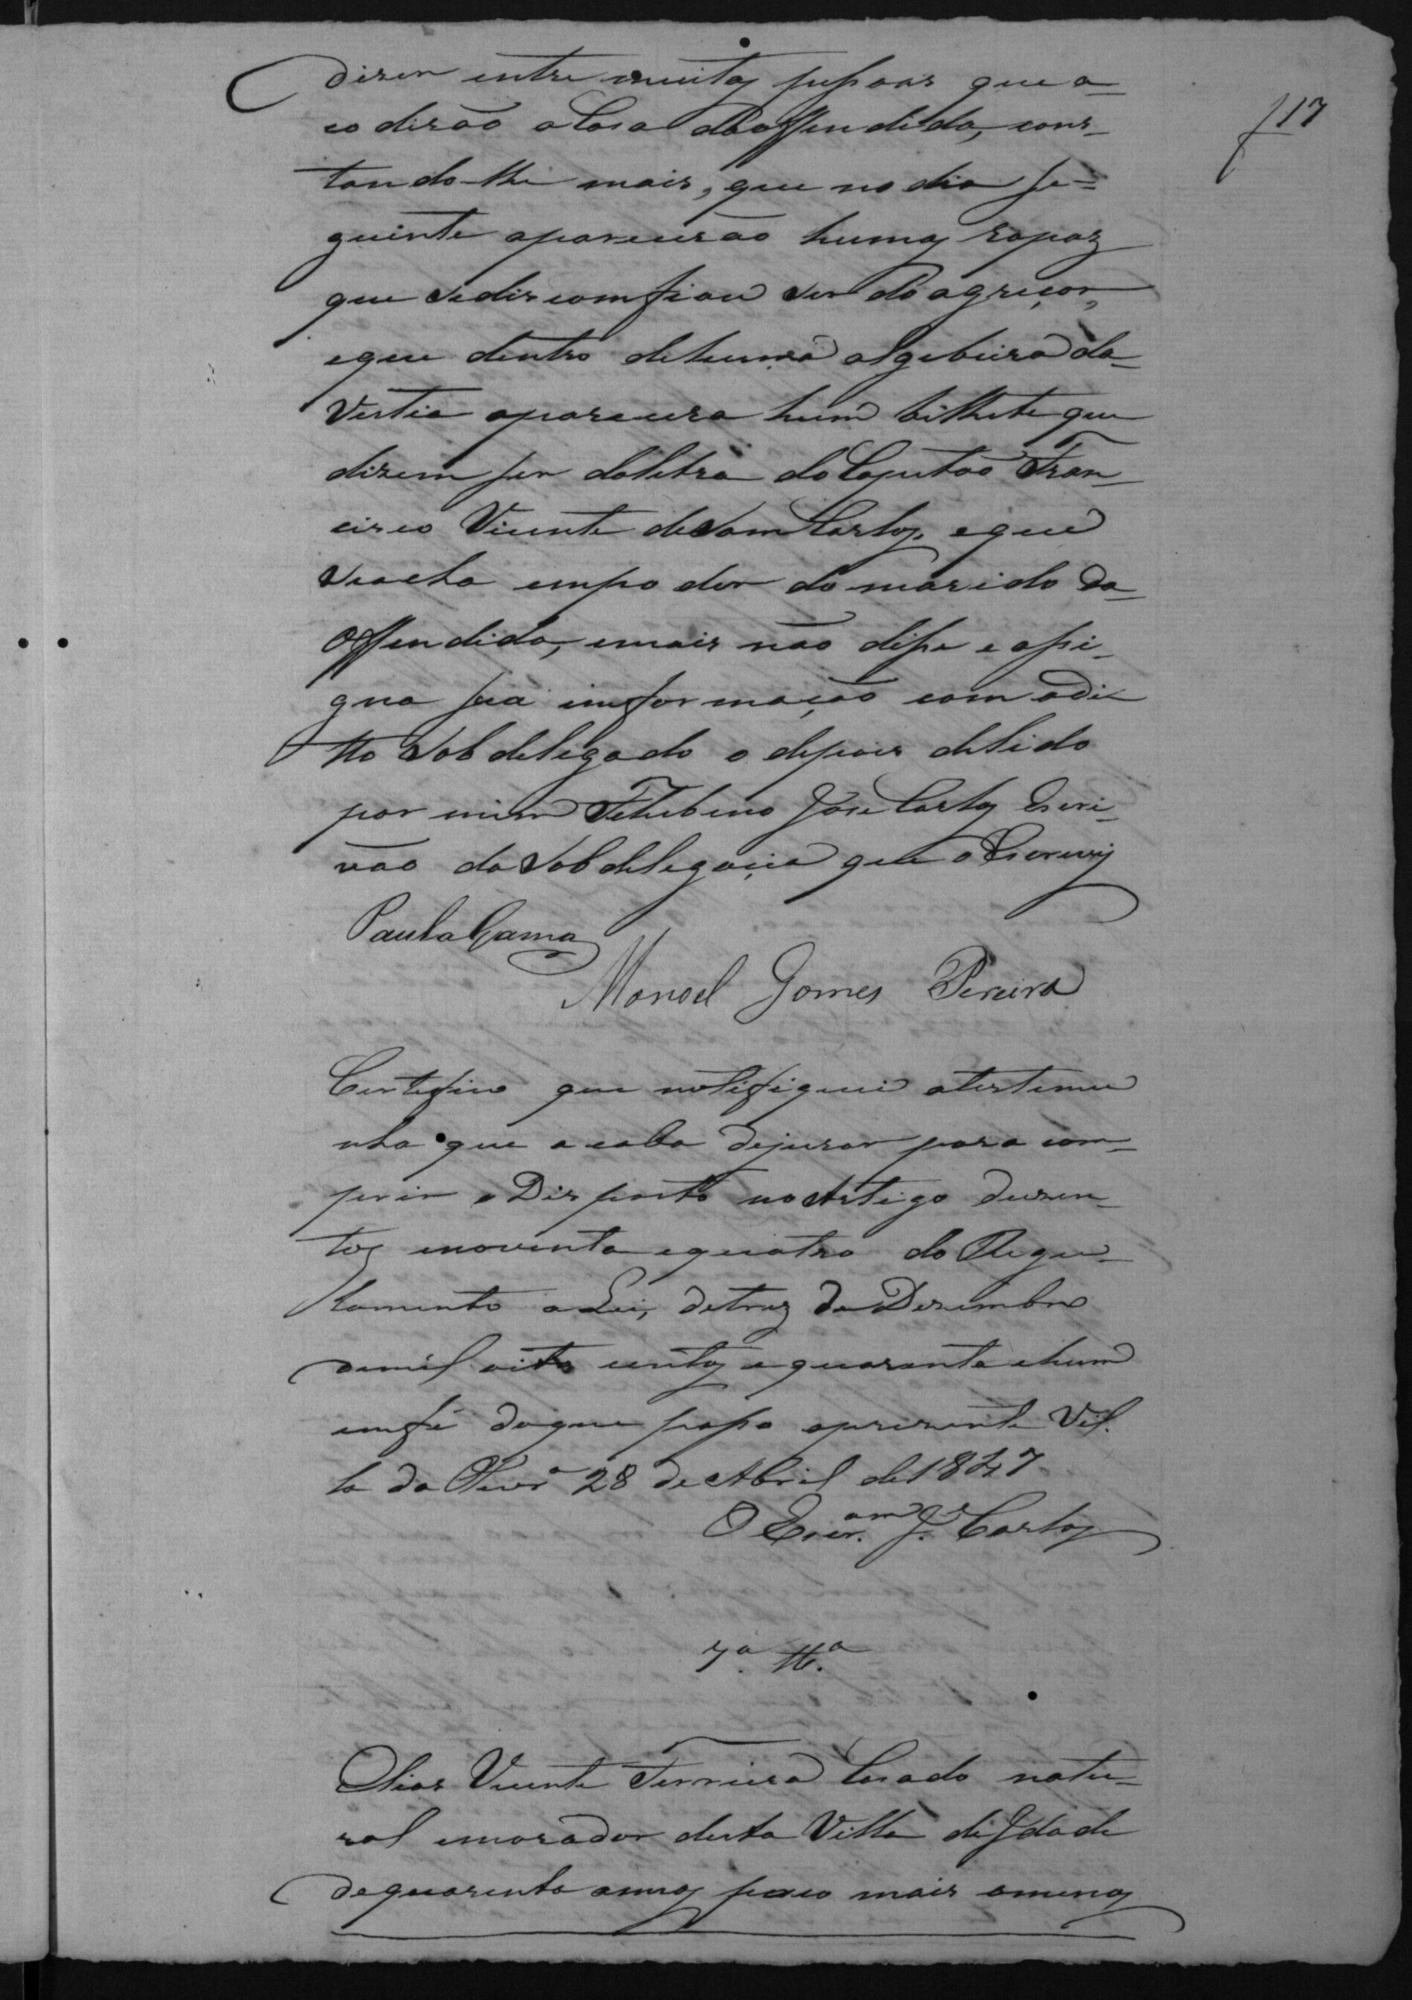 f 17
diser entre muitas pessoas que a-
codirão a Casa da offendida, cons-
tando-lhe mais, que no dia se-
guinte aparecerão humas ropas
que sedisconfiou ser do agreçor,
e que dentro de huma algebeira da
Vestia aparecera hum bilhete que
dizem ser da letra do Capitão Fran-
cisco Vicente de Sam Carlos, e que
se acha em poder do marido da
Offendida, e mais não disse e assi-
gna sua imformação com o di-
tto Sobdelegado e depois de lido
por mim José Carlos Escri-
vão da Sobdelegacia que o Escrevy
Paula Gama
Manoel Gomes Pereira
Certefico que notifiquei atestemu
nha que acaba dejurar para com-
prir o Disposto no Artigo duzen-
tos enoventa equatro do Regu-
lamento a Lei, detres de Dezembro
demil oito centos e quarenta e hum
emfé doque passo apresente Vil-
la da Olivrª 28 de Abril de 1847
O Escr.am J.e Carlos
7ª. ttª.
Elias Vicente Ferreira Casado natu-
ral emorador desta Villa de Idade
dequarenta annos poco mais omenos